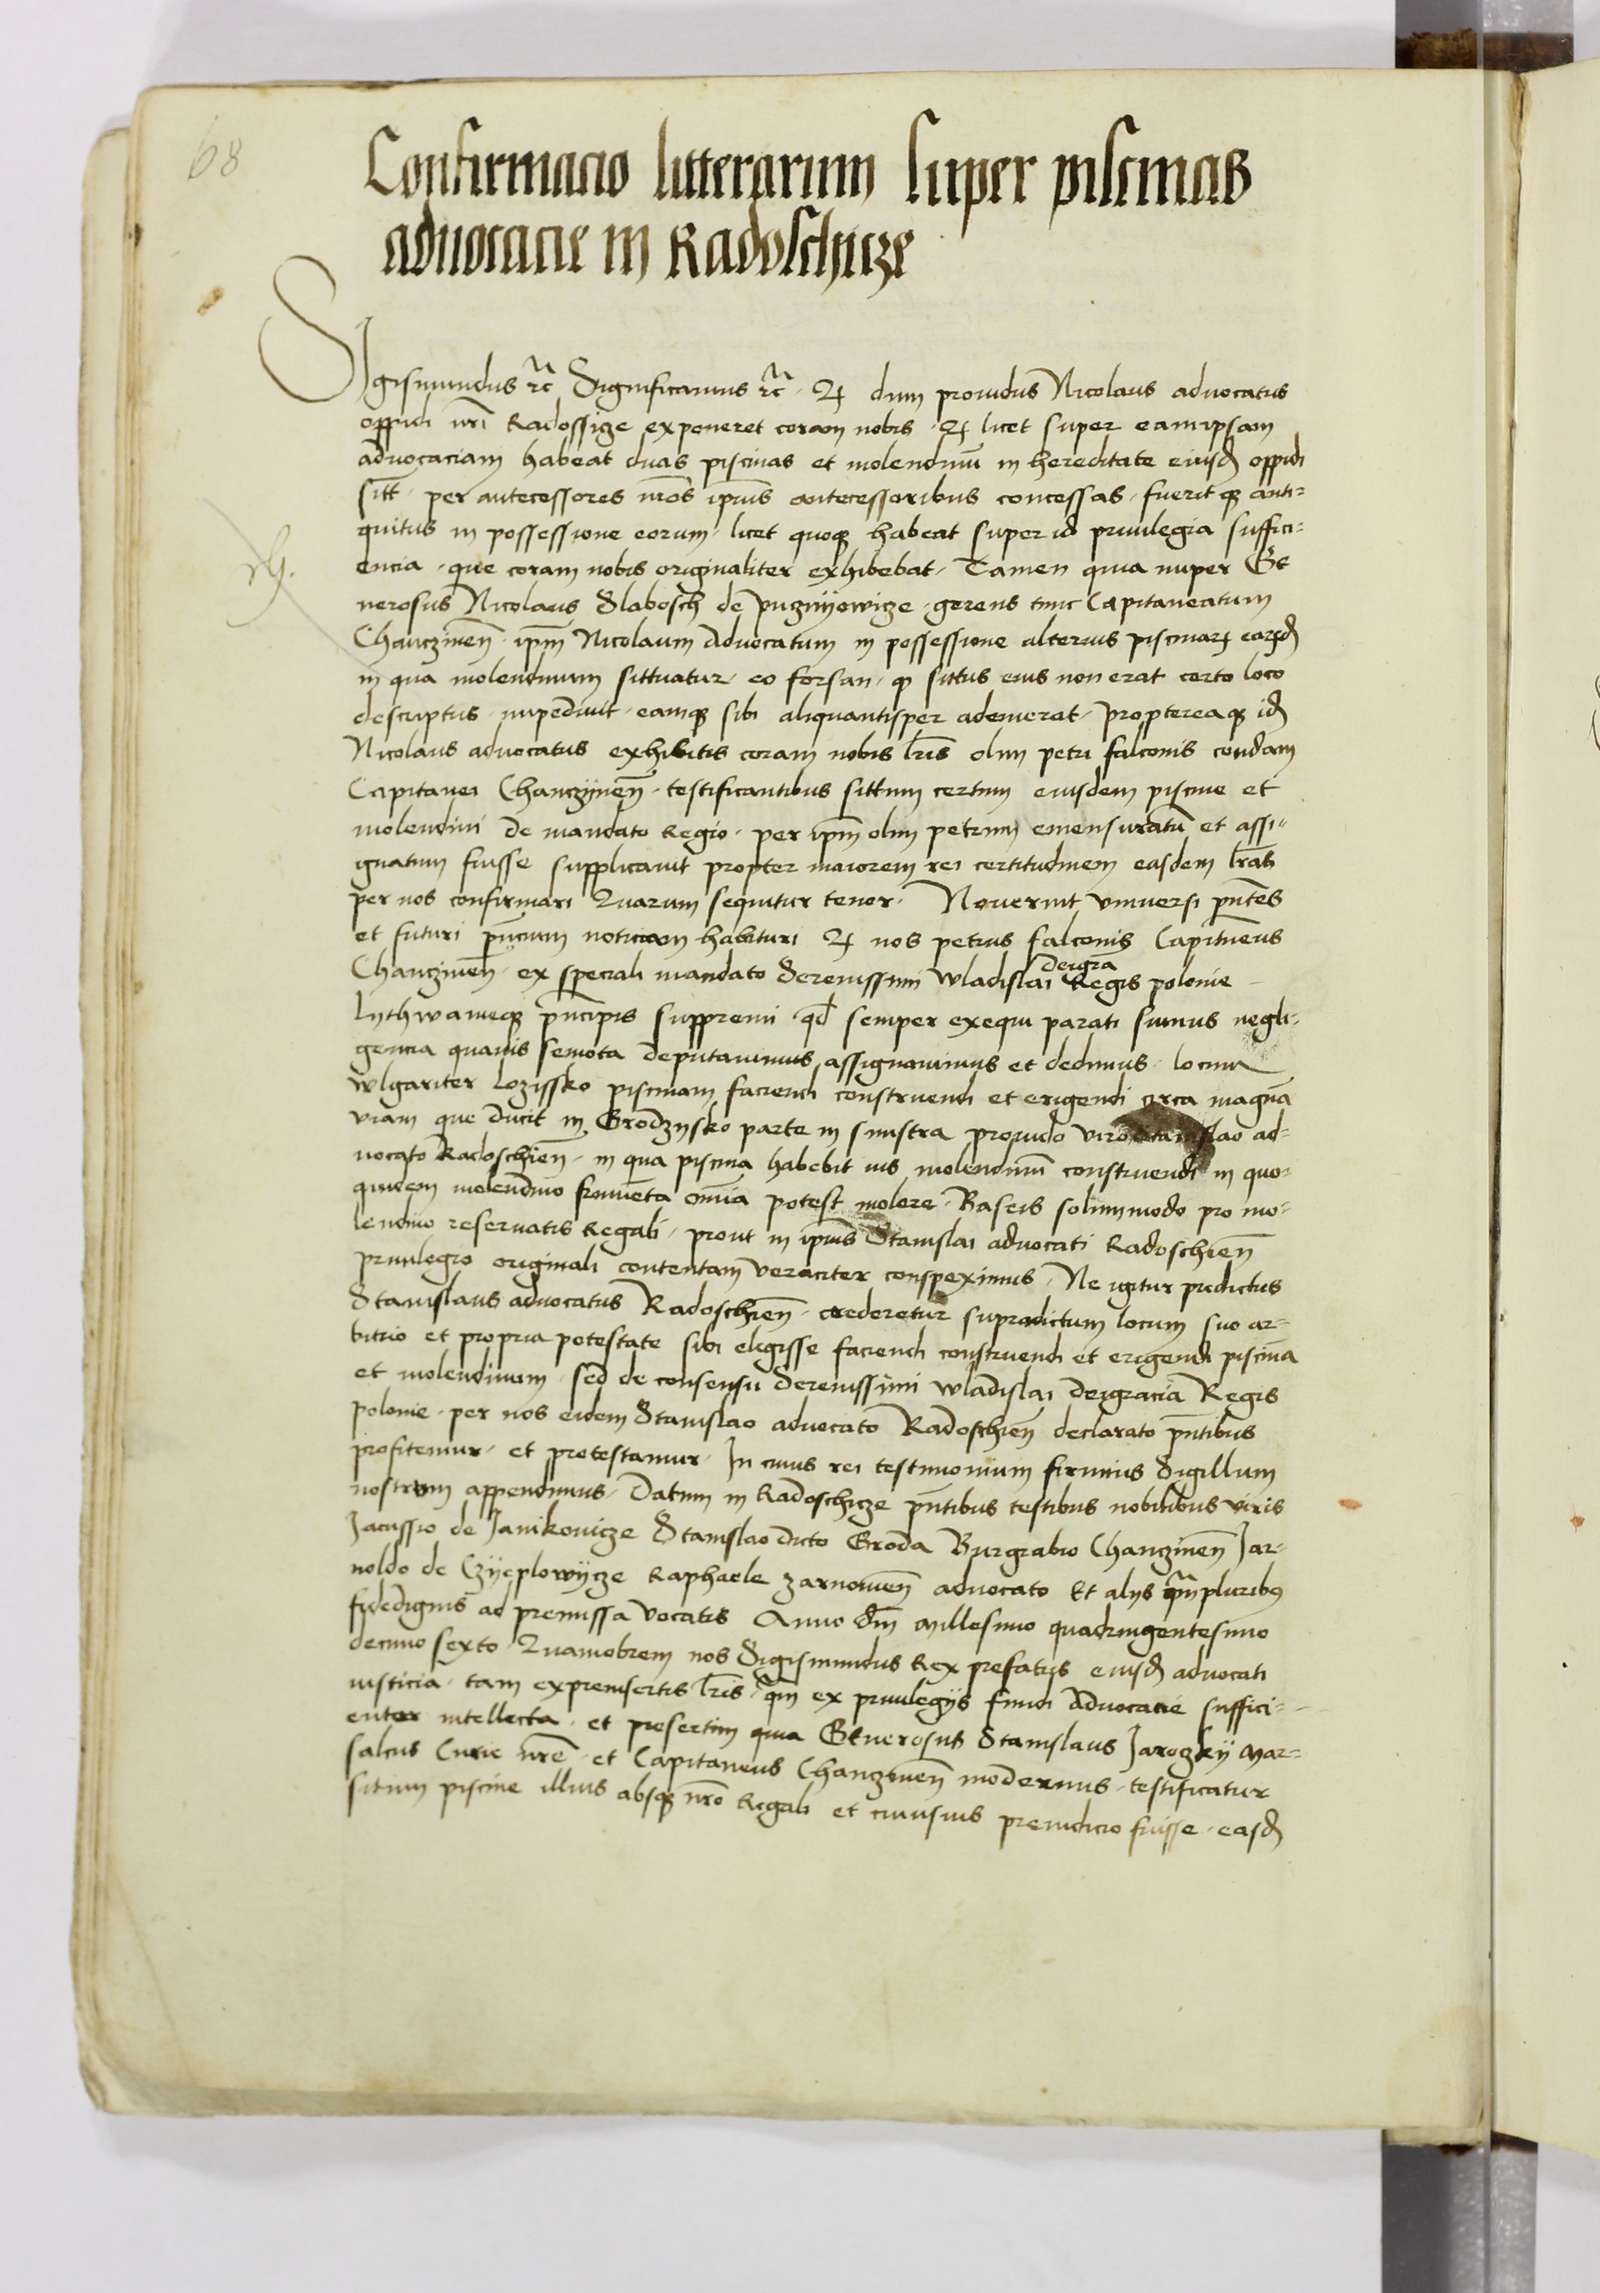 68
Confirmacio litterarum super piscinas
advocacie in Radoschicze
Sigismundus rc̃ Significamus rc̃ · Ꝙ dum prouidus Nicolaus aduocatus
oppidi nr̃i Radossize exponeret coram nobis · Ꝙ licet super eamipsam
aduocaciam habeat duas piscinas et molendinũ in hereditate eiusd̃ oppidi
sitt · per antecessores nr̃os ip̃ius antecessoribus concessas · fueritqꝫ anti-
quitus in possessione eorum · licet quoqꝫ habeat super id priuilegia suffici-
encia · que coram nobis originaliter exhibebat · Tamen quia nuper Ge
nerosus Nicolaus Slabosch de Puznyowicze · gerens tunc Capitaneatum
Chanczineñ · ip̃m Nicolaum Aduocatum in possessione alterius piscinarꝫ earꝫd̃
in qua molendinum sittuatur · eo forsan · ꝙ sittus eius non erat certo loco
descriptus · impediuit · eamqꝫ sibi aliquantisper ademerat · Proptereaqꝫ id̃
Nicolaus aduocatus exhibitis coram nobis lr̃is olim petri falconis condam
Capitanei Chanczyneñ · testificantibus sittum certum eiusdem piscine et
molendini de mandato Regio · per ip̃m olim petrum emensuratũ et assi-
gnatum fuisse supplicauit propter maiorem rei certitudinem easdem lr̃as
per nos confirmari Quarum sequitur tenor · Nouerint vniuersi pñtes
et futuri pñcium noticiam habituri Ꝙ nos petrus falconis Capitneus
Chanczineñ · ex speciali mandato Serenissimi Wladislai deigrã Regis polonie
Lythwanieqꝫ pñcipis suppremi qd̃ semper exequi parati sumus negli-
gencia quauis semota deputauimus assignauimus et dedimus · locum
wlgariter Lozissko piscinam faciendi construendi et erigendi circa magnã
viam que ducit in Grodzysko parte in sinistra prouido viro Stanislao ad-
uocato Radoschieñ · in qua piscina habebit ius molendinũ construendi in quo-
quidem molendino frumẽta om̃ia potest molere · Baseis solummodo pro mo-
lendino reseruatis Regali · prout in ip̃ius Stanislai aduocati Radoschieñ
priuilegio originali contentam veraciter conspeximus · Ne igitur predictus
Stanislaus aduocatus Radoschieñ · crederetur supradictum locum suo ar-
bitrio et propria potestate sibi elegisse faciendi construendi et erigendi piscinã
et molendinum · sed de consensu Serenissimi Wladislai deigracia Regis
polonie · per nos eidem Stanislao aduocato Radoschieñ declarato pñtibus
profitemur · et protestamur · In cuius rei testimonium firmius Sigillum
nostrum appendimus · Datum in Radoschicze pñtibus testibus nobilibus viris
Jacussio de Janikouicze Stanislao dicto Groda Burgrabio Chanczineñ Jar-
noldo de Czyeplowycze Raphaele zarnoweñ aduocato Et alijs qm̃pluribꝫ
fidedignis ad premissa vocatis Anno dñi Millesimo quadringentesimo
decimo sexto · Quamobrem nos Sigismundus Rex prefatus eiusd̃ aduocati
iusticia · tam expreinsertis lr̃is · qm̃ ex priuilegijs fundi Aduocacie suffici-
enter intellecta · et presertim quia Generosus Stanislaus Jaroczky Mar-
salcus Curie nr̃e · et Capitaneus Chanczineñ modernus · testificatur
situm piscine illius absqꝫ nr̃o Regali et cuiusuis preiudicio fuisse · easd̃